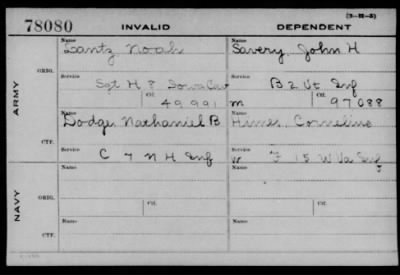 (3-III-5)
78080 INVALID DEPENDENT
ARMY
NAVY
ORIG.
Name Name
Lantz Noah Savery, John H
Service Service
Sgt H 8 Iowa Cav B 2 Vt Inf
Ctf. Ctf.
49,991 m 97088
CTF.
Name Name
Dodge, Nathaniel B Himes, Cornelius
Service Service
C 7 N H Inf w F 15 W Va Inf
ORIG.
Name Name
Service Service
Ctf. Ctf.
CTF.
Name Name